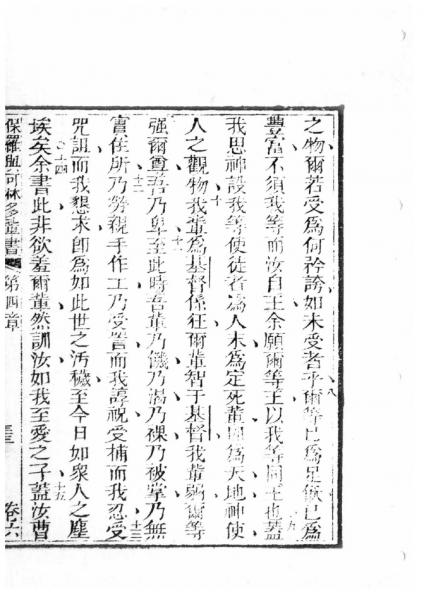 之物爾若受為何矜誇如未受者乎爾等已為足飫已為
豐富不須我等而汝自王余願爾等王以我等同王也蓋
我思神設我等使徒者為人末為定死蓋因為天地神使
人之觀物我輩為基督係狂爾輩智于基督我輩弱爾等
強爾尊吾乃卑至此時吾輩乃饑乃渴乃裸乃被掌乃無
實住所乃勞親手作工乃受詈而我諄祝受捕而我忍受
咒詛而我懇求卽為如此世之汚穢至今日如衆人之塵
埃矣余書此非欲羞爾輩然訓汝如我至愛之子蓋汝曹
保羅與可林多輩書 第四章 卷六
八
九
十
十一
十二
十三
十四
十五